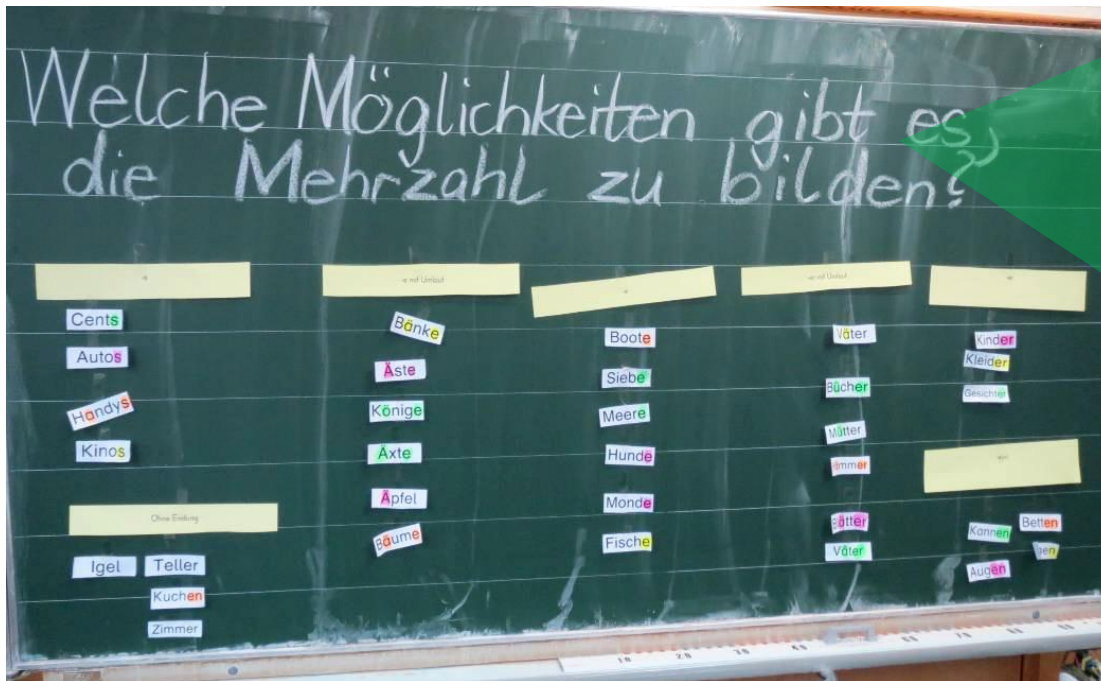 Welche Möglichkeiten gibt es,
die Mehrzahl zu bilden?
-s
Cents
Autos
Handys
Kinos
Ohne Endung
Igel Teller
Kuchen
Zimmer
-e mit Umlaut
Bänke
Äste
Könige
Äxte
Äpfel
Bäume
-e
Boote
Siebe
Meere
Hunde
Monde
Fische
-er mit Umlaut
Väter
Bücher
Mütter
Blätter
Väter
-er
Kinder
Kleider
Gesichter
Kannen Betten
Augen